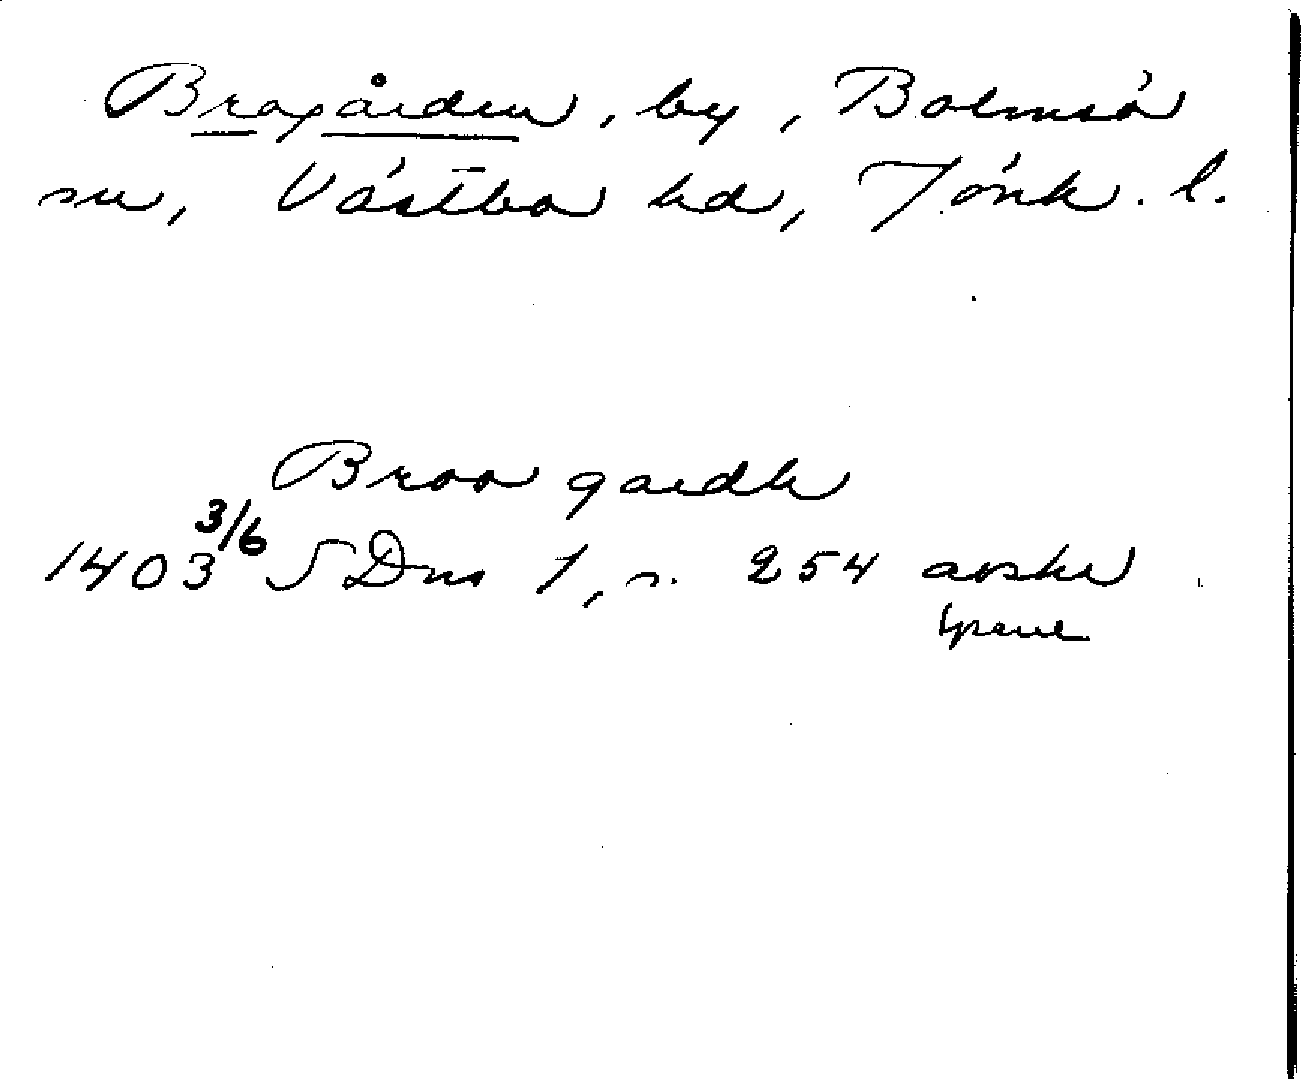 Brogården, by, Bolmsö
sn, Västbo hd, Jönk. l.
Broo gardh
1403 3/6 SDns 1, s. 254 avskr